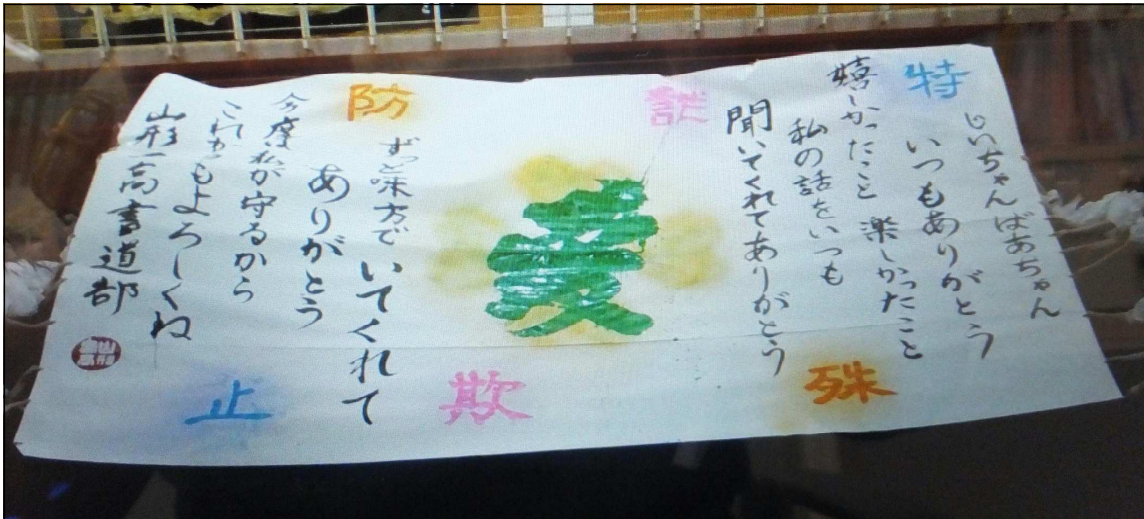 特
殊
詐
欺
防
止
じいちゃんばあちゃん
いつもありがとう
嬉しかったこと 楽しかったこと
私の話をいつも
聞いてくれてありがとう
愛
ずっと味方でいてくれて
ありがとう
今度は私が守るから
これからもよろしくね
山形一高書道部